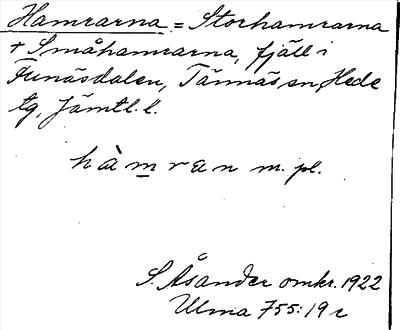 Hamrarna = Storhamrarna
+ Småhamrarna, fjäll i
Funäsdalen, Tännäs sn, Hede
tg, Jämtl. l.
hàmran m. pl.
S. Åsander omkr. 1922
Ulma 755:19 r